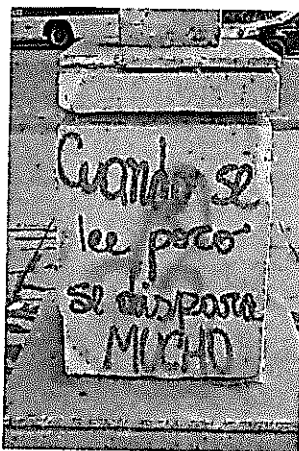 Cuando se
lee poco
se dispara
MUCHO